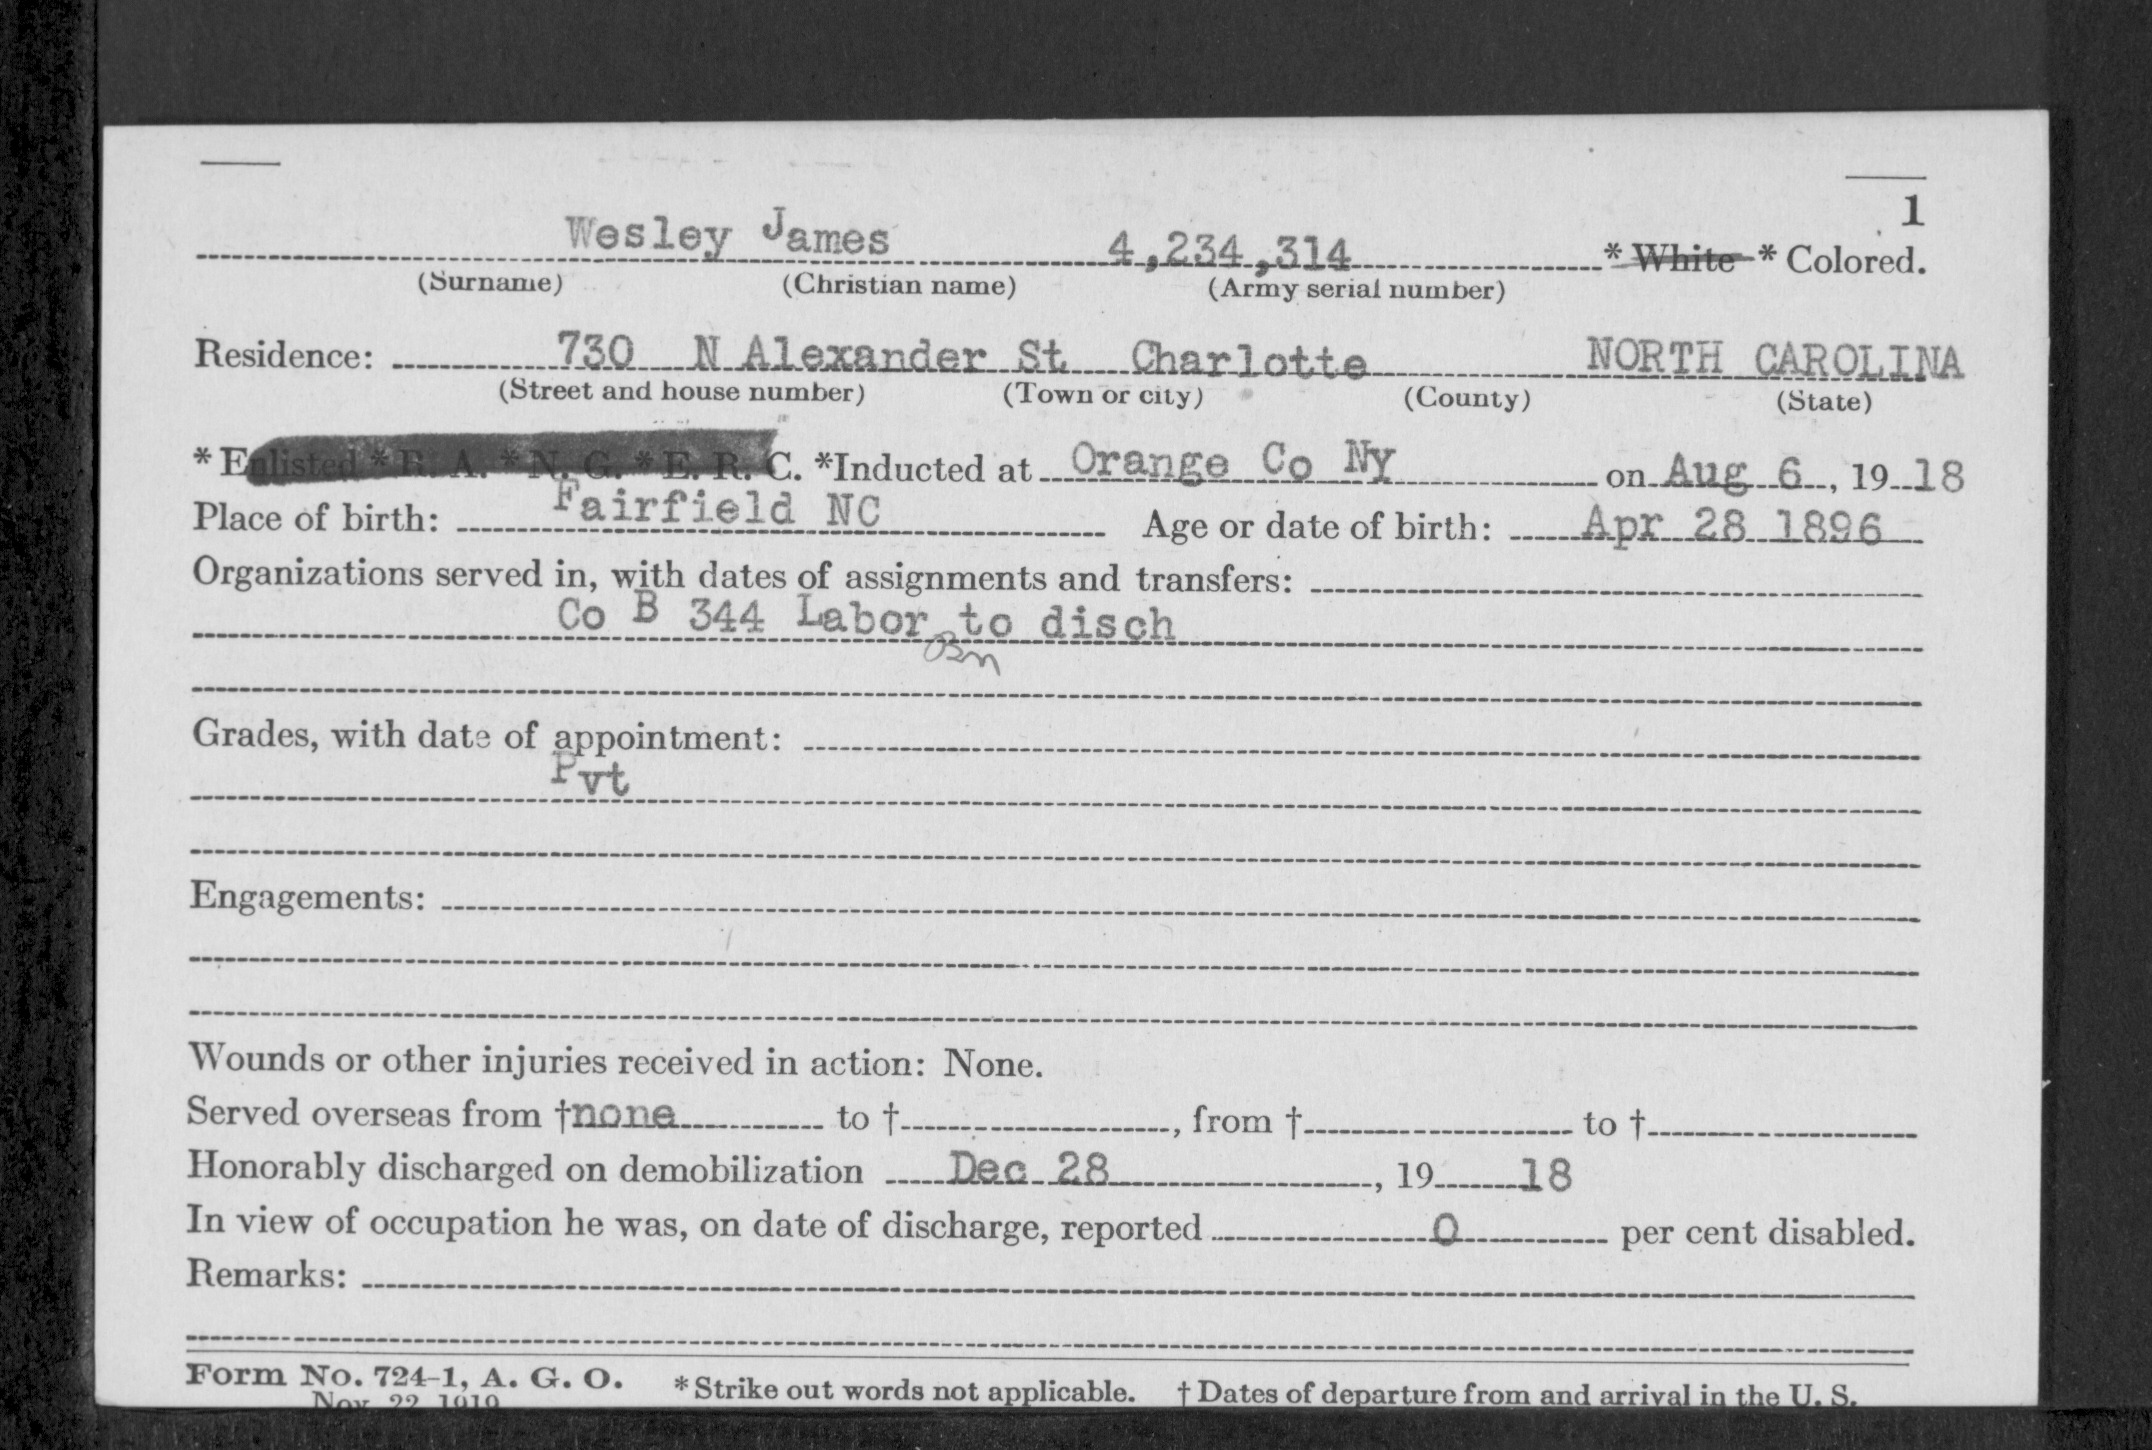 1
Wesley James 4,234,314 * White * Colored.
(Surname) (Christian name) (Army serial number)
Residence: 730 N Alexander St Charlotte NORTH CAROLINA
(Street and house number) (Town or city) (County) (State)
* Enlisted * R. A. * N. G. * E. R. C. *Inducted at Orange Co Ny on Aug 6, 19 18
Place of birth: Fairfield NC Age or date of birth: Apr 28 1896
Organizations served in, with dates of assignments and transfers:
Co B 344 Labor to disch
Bn
Grades, with date of appointment:
Pvt
Engagements:
Wounds or other injuries received in action: None.
Served overseas from †none to †, from † to †
Honorably discharged on demobilization Dec 28, 19 18
In view of occupation he was, on date of discharge, reported 0 per cent disabled.
Remarks:
Form No. 724-1, A. G. O. *Strike out words not applicable. † Dates of departure from and arrival in the U. S.
Nov 22 1919